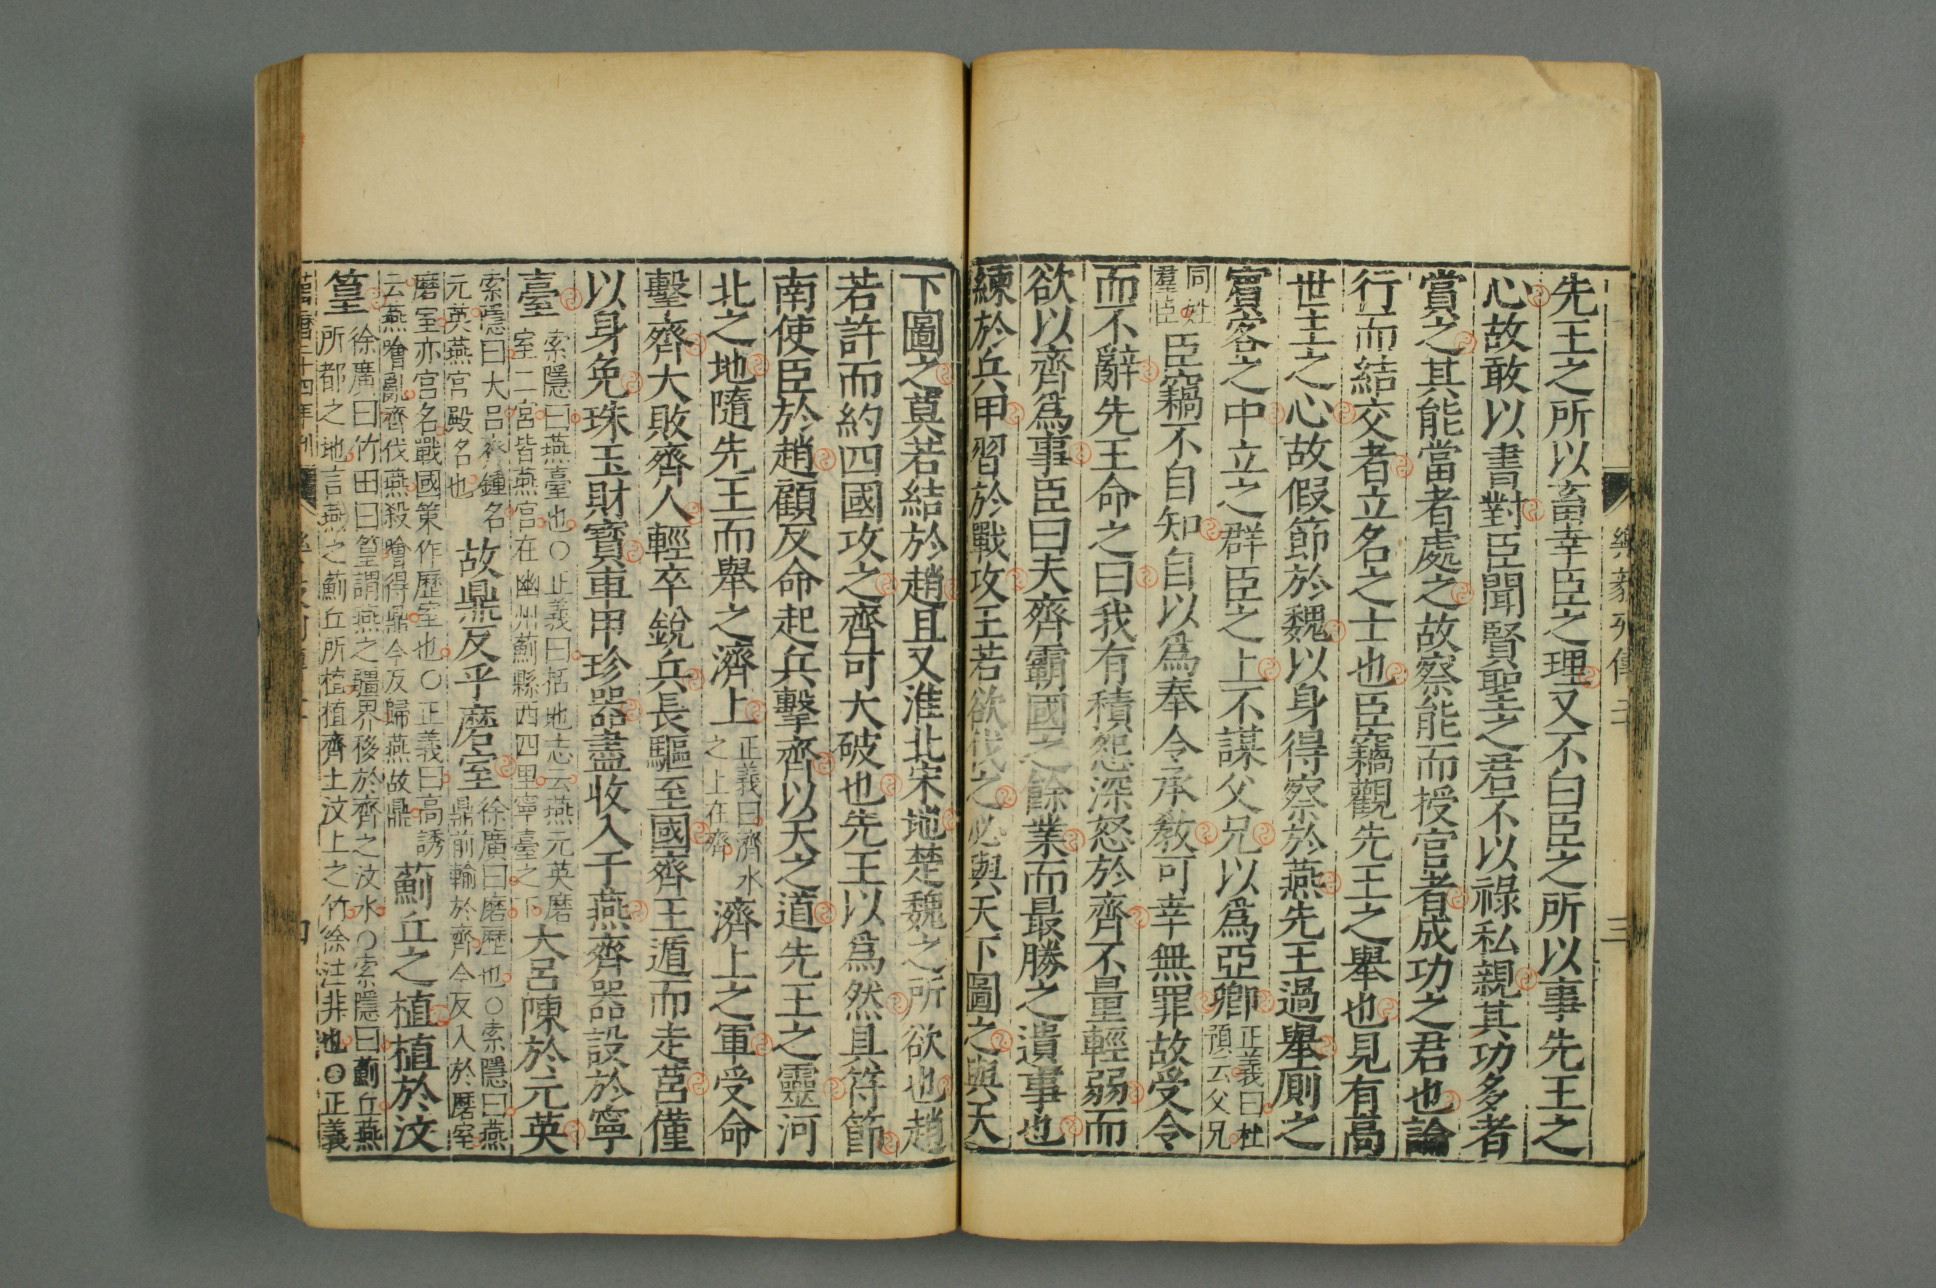 樂毅列傳二
三
先王之所以畜幸臣之理又不白臣之所以事先王之
心故敢以書對臣聞賢聖之君不以祿私親其功多者
賞之其能當者處之故察能而授官者成功之君也論
行而結交者立名之士也臣竊觀先王之舉也見有高
世主之心故假節於魏以身得察於燕先王過舉厠之
賓客之中立之群臣之上不謀父兄以爲亞卿正義曰杜預云父兄
同姓羣臣臣竊不自知自以爲奉令承教可幸無罪故受令
而不辭先王命之曰我有積怨深怒於齊不量輕弱而
欲以齊爲事臣曰夫齊霸國之餘業而最勝之遺事也
練於兵甲習於戰攻王若欲伐之必與天下圖之與天
下圖之莫若結於趙且又淮北宋地楚魏之所欲也趙
若許而約四國攻之齊可大破也先王以爲然具符節
南使臣於趙顧反命起兵擊齊以天之道先王之靈河
北之地隨先王而舉之濟上正義曰濟水之上在齊濟上之軍受命
擊齊大敗齊人輕卒銳兵長驅至國齊王遁而走莒僅
以身免珠玉財寶車甲珍器盡收入于燕齊器設於寧
臺索隱曰燕臺也○正義曰括地志云燕元英磨室二宮皆燕宮在幽州薊縣西四里寧臺之下大呂陳於元英
索隱曰大呂齊鍾名元英燕宮殿名也故鼎反乎磨室徐廣曰磨歷也○索隱曰燕鼎前輸於齊今反入於磨室
磨室亦宮名戰國策作歷室也○正義曰高誘云燕噲亂齊伐燕殺噲得鼎今反歸燕故鼎薊丘之植植於汶
篁徐廣曰竹田曰篁謂燕之疆界移於齊之汶水○索隱曰薊丘燕所都之地言燕之薊丘所植植齊王汶上之竹徐注非也○正義
四